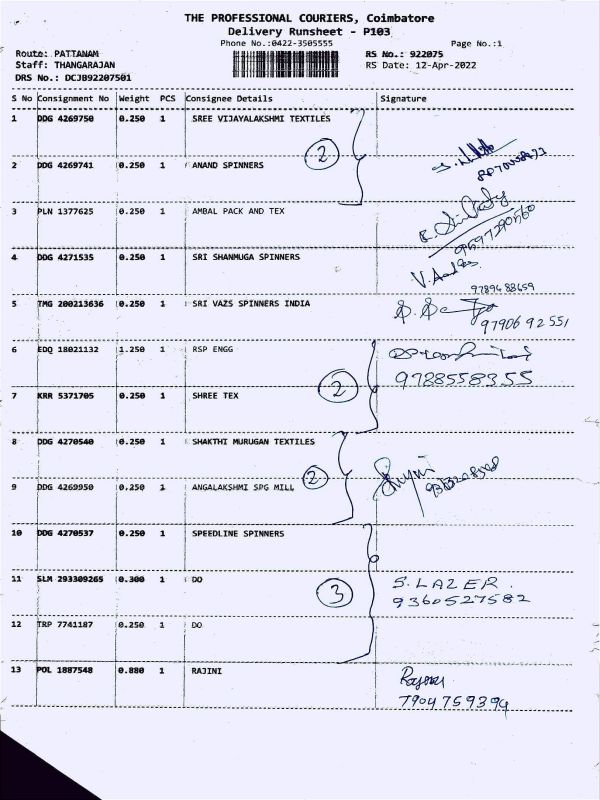 THE PROFESSIONAL COURIERS, Coimbatore
Delivery Runsheet - P103
Phone No.:0422-3505555 Page No.:1
Route: PATTANAM RS No.: 922075
Staff: THANGARAJAN RS Date: 12-Apr-2022
DRS No.: DCJB92207501
S No Consignment No Weight PCS Consignee Details Signature
1 DDG 4269750 0.250 1 SREE VIJAYALAKSHMI TEXTILES
2
2 DDG 4269741 0.250 1 ANAND SPINNERS
3 PLN 1377625 0.250 1 AMBAL PACK AND TEX
4 DDG 4271535 0.250 1 SRI SHANMUGA SPINNERS
9789488659
5 TMG 200213636 0.250 1 SRI VAZS SPINNERS INDIA
9790692551
6 EDQ 18021132 1.250 1 RSP ENGG
2 9788558355
7 KRR 5371705 0.250 1 SHREE TEX
8 DDG 4270540 0.250 1 SHAKTHI MURUGAN TEXTILES
2
9 DDG 4269950 0.250 1 ANGALAKSHMI SPG MILL
10 DDG 4270537 0.250 1 SPEEDLINE SPINNERS
11 SLM 293309265 0.300 1 DO S. LAZER.
3 9360527582
12 TRP 7741187 0.250 1 DO
13 POL 1887548 0.880 1 RAJINI
7904759394